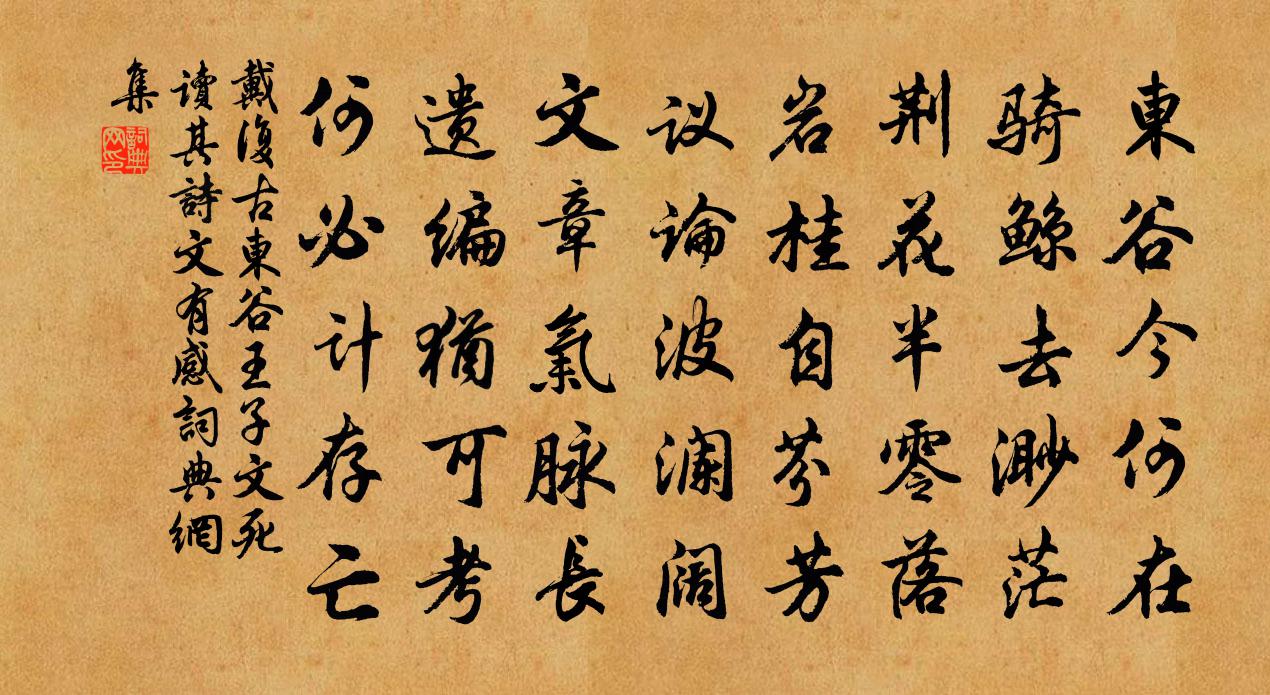 東谷今何在
骑鲸去渺茫
荆花半零落
岩桂自芬芳
议论波澜阔
文章氣脉長
遗编犹可考
何必计存亡
戴復古東谷王子文死
讀其詩文有感詞典網
集
詞典
网印